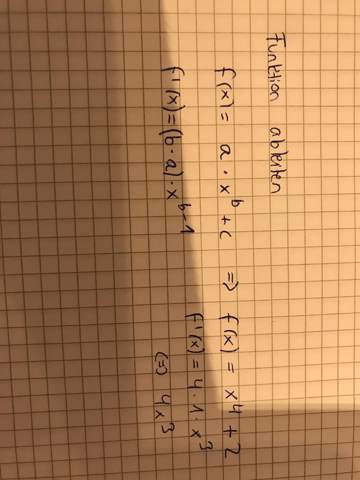 Funktion ableiten
f(x) = a · x^b + c ⇒ f(x) = x^4 + 2
f'(x) = (b · a) · x^b-1 f'(x) = 4 · 1 · x^3
(=) 4x^3